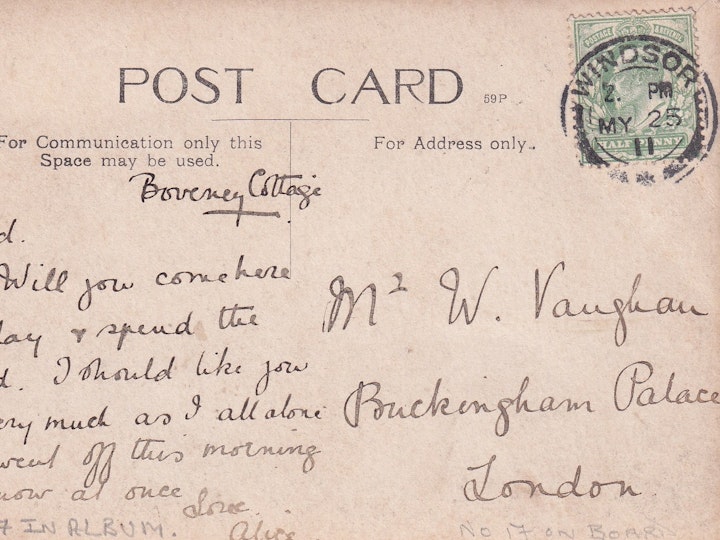 POST CARD
59P
For Communication only this
Space may be used.
For Address only.
WINDSOR
2. PM
MY 25
11
POSTAGE & REVENUE
HALF PENNY
Boveney Cottage
d.
Will you come here
day & spend the
d. I should like you
ery much as I all alone
went off this morning
now at once
Love
Alice
Mr W. Vaughan
Buckingham Palace
London.
7 IN ALBUM.
No 17 ON BOARD